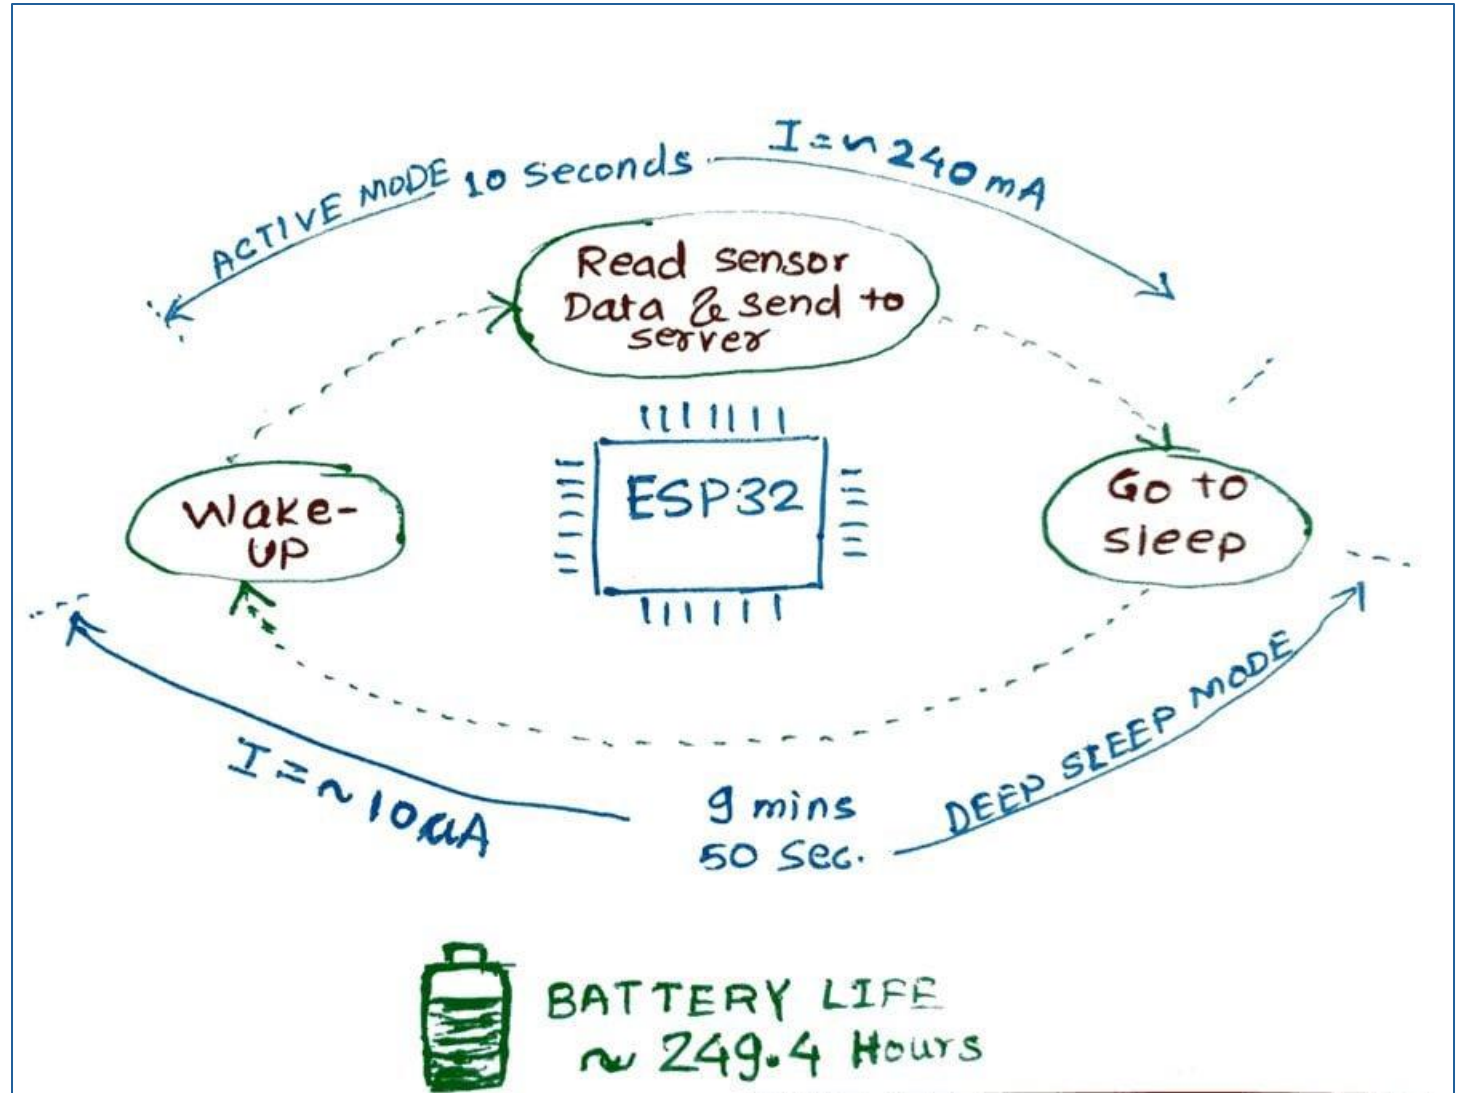 ACTIVE MODE 10 seconds I = ~ 240 mA
Read sensor
Data & send to
server
ESP32
Wake-
UP
Go to
sleep
I = ~ 10uA
9 mins
50 Sec.
DEEP SLEEP MODE
BATTERY LIFE
~ 249.4 Hours